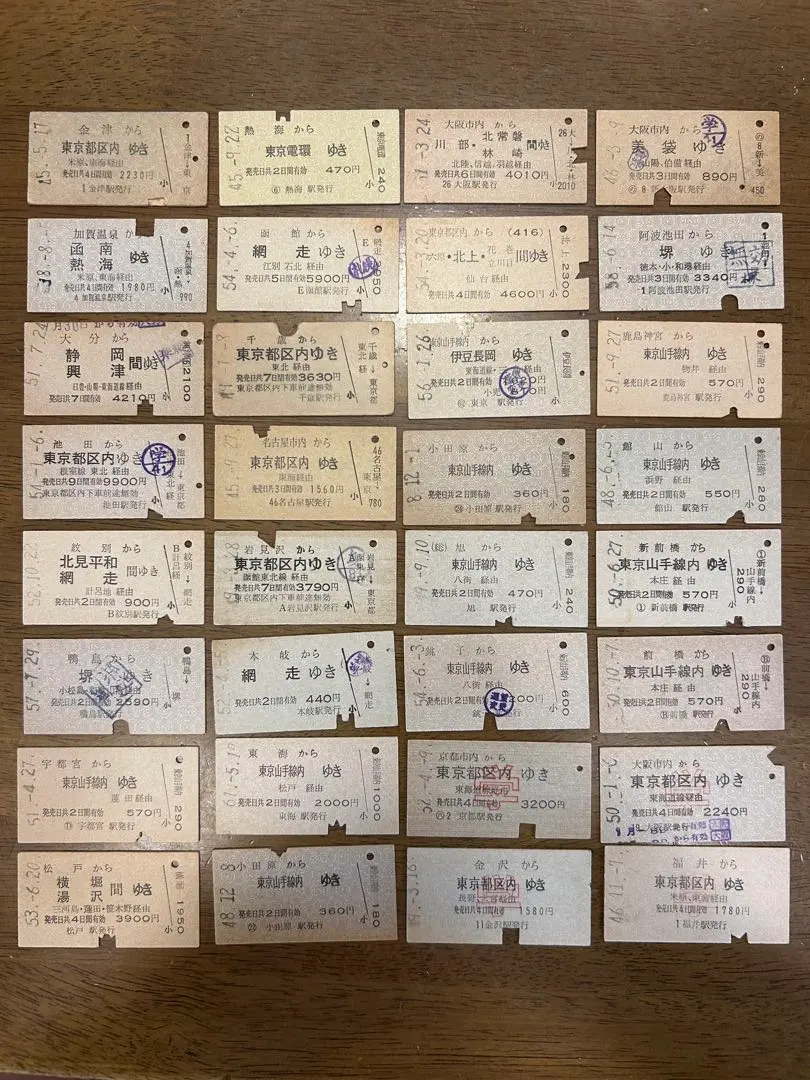 金津から
東京都区内 ゆき
米原、東海経由
発売日共4日間有効 2230円
1金津駅発行
45.-5.17
熱海から
東京電環 ゆき
発売日共2日間有効 470円
⑥ 熱海駅発行
東京電環
240
45.-9.22
大阪市内 から
川部・
北常磐
林崎
間ゆき
北陸、信越、羽越経由
発売日共6日間有効 4010円
26 大阪駅発行
2010
大阪市内から
美袋 ゆき
山陽、伯備経由
発売日共3日間有効 890円
8 新大阪駅発行
学
450
加賀温泉から
函南
熱海
ゆき
米原、東海経由
発売日共4日間有効 1980円
4 加賀温泉駅発行
990
函館から
網走ゆき
江別 石北 経由
発売日共5日間有効 5900円
E函館駅発行
54.-4.-6
東京都区内 から (416)
六原・北上・
花巻
立川目
間ゆき
仙台経由
発売日共4日間有効 4600円
北上 2300
54.-3.20
阿波池田 から
堺 ゆき
徳本・小・和港経由
発売日共4日間有効 3340円
1阿波池田駅発行
58.-6.14
大分から
静岡
興津
間ゆき
日豊・山陽・東海道線経由
発売日共7日間有効 4210円
2100
千歳から
東京都区内ゆき
東北 経由
発売日共7日間有効3630円
東京都区内下車前途無効
千歳駅発行
千歳→東京都
東北経
小
東京山手線内 から
伊豆長岡 ゆき
発売日共2日間有効
東京 駅発行
伊豆長岡
56.-1.26
鹿島神宮 から
東京山手線内 ゆき
物井 経由
発売日共2日間有効 570円
鹿島神宮 駅発行
290
51.-9.27
池田から
東京都区内 ゆき
根室線 東北 経由
発売日共9日間有効9900円
東京都区内下車前途無効
池田駅発行
学
名古屋市内 から
東京都区内 ゆき
東海経由
発売日共3日間有効 1560円
46名古屋駅発行
46名古屋→東京
780
45.-9.27
小田原から
東京山手線内 ゆき
発売日共2日間有効 360円
小田原駅発行
180
館山から
東京山手線内 ゆき
浜野 経由
発売日共2日間有効 550円
館山 駅発行
280
48.-6.-5
紋別から
北見平和
網走
間ゆき
計呂地 経由
発売日共2日間有効 900円
B紋別駅発行
B紋別→網走
計呂地経
52.10.22
岩見沢から
東京都区内ゆき
函館東北線 経由
発売日共7日間有効3790円
東京都区内下車前途無効
A岩見沢駅発行
A岩見沢→東京都
(総) 旭から
東京山手線内 ゆき
八街 経由
発売日共2日間有効 470円
旭 駅発行
240
49.-9.10
新前橋から
東京山手線内 ゆき
本庄 経由
発売日共2日間有効 570円
① 新前橋 駅発行
①新前橋→山手線内
290
50.-6.27
鴨島から
堺 ゆき
発売日共2日間有効 2590円
鴨島駅発行
鴨島→堺
57.-7.29
本岐から
網走ゆき
発売日共2日間有効 440円
本岐駅発行
本岐→網走
銚子から
東京山手線内 ゆき
八街 経由
発売日共2日間有効
600
54.-6.-3
前橋から
東京山手線内 ゆき
本庄 経由
発売日共2日間有効 570円
前橋 駅発行
前橋→山手線内
290
50.10.-7
宇都宮から
東京山手線内 ゆき
蓮田 経由
発売日共2日間有効 570円
⑪ 宇都宮 駅発行
290
51.-4.27
東海から
東京山手線内 ゆき
松戸 経由
発売日共2日間有効 2000円
東海 駅発行
1000
京都市内 から
東京都区内 ゆき
発売日共4日間有効 3200円
2 京都駅発行
大阪市内から
東京都区内 ゆき
東海道線経由
発売日共4日間有効 2240円
大阪駅発行
から有効
50.-1.-6
松戸から
横堀
湯沢
間ゆき
三河島・蓮田・笹木野経由
発売日共4日間有効3900円
松戸 駅発行
1950
53.-6.20
小田原から
東京山手線内 ゆき
発売日共2日間有効 360円
㉒ 小田原 駅発行
180
48.12.-8
金沢から
東京都区内 ゆき
長野、大宮経由
発売日共4日間有効 1580円
11金沢駅発行
福井から
東京都区内 ゆき
米原、東海経由
発売日共4日間有効 1780円
1 福井駅発行
46.11.-7